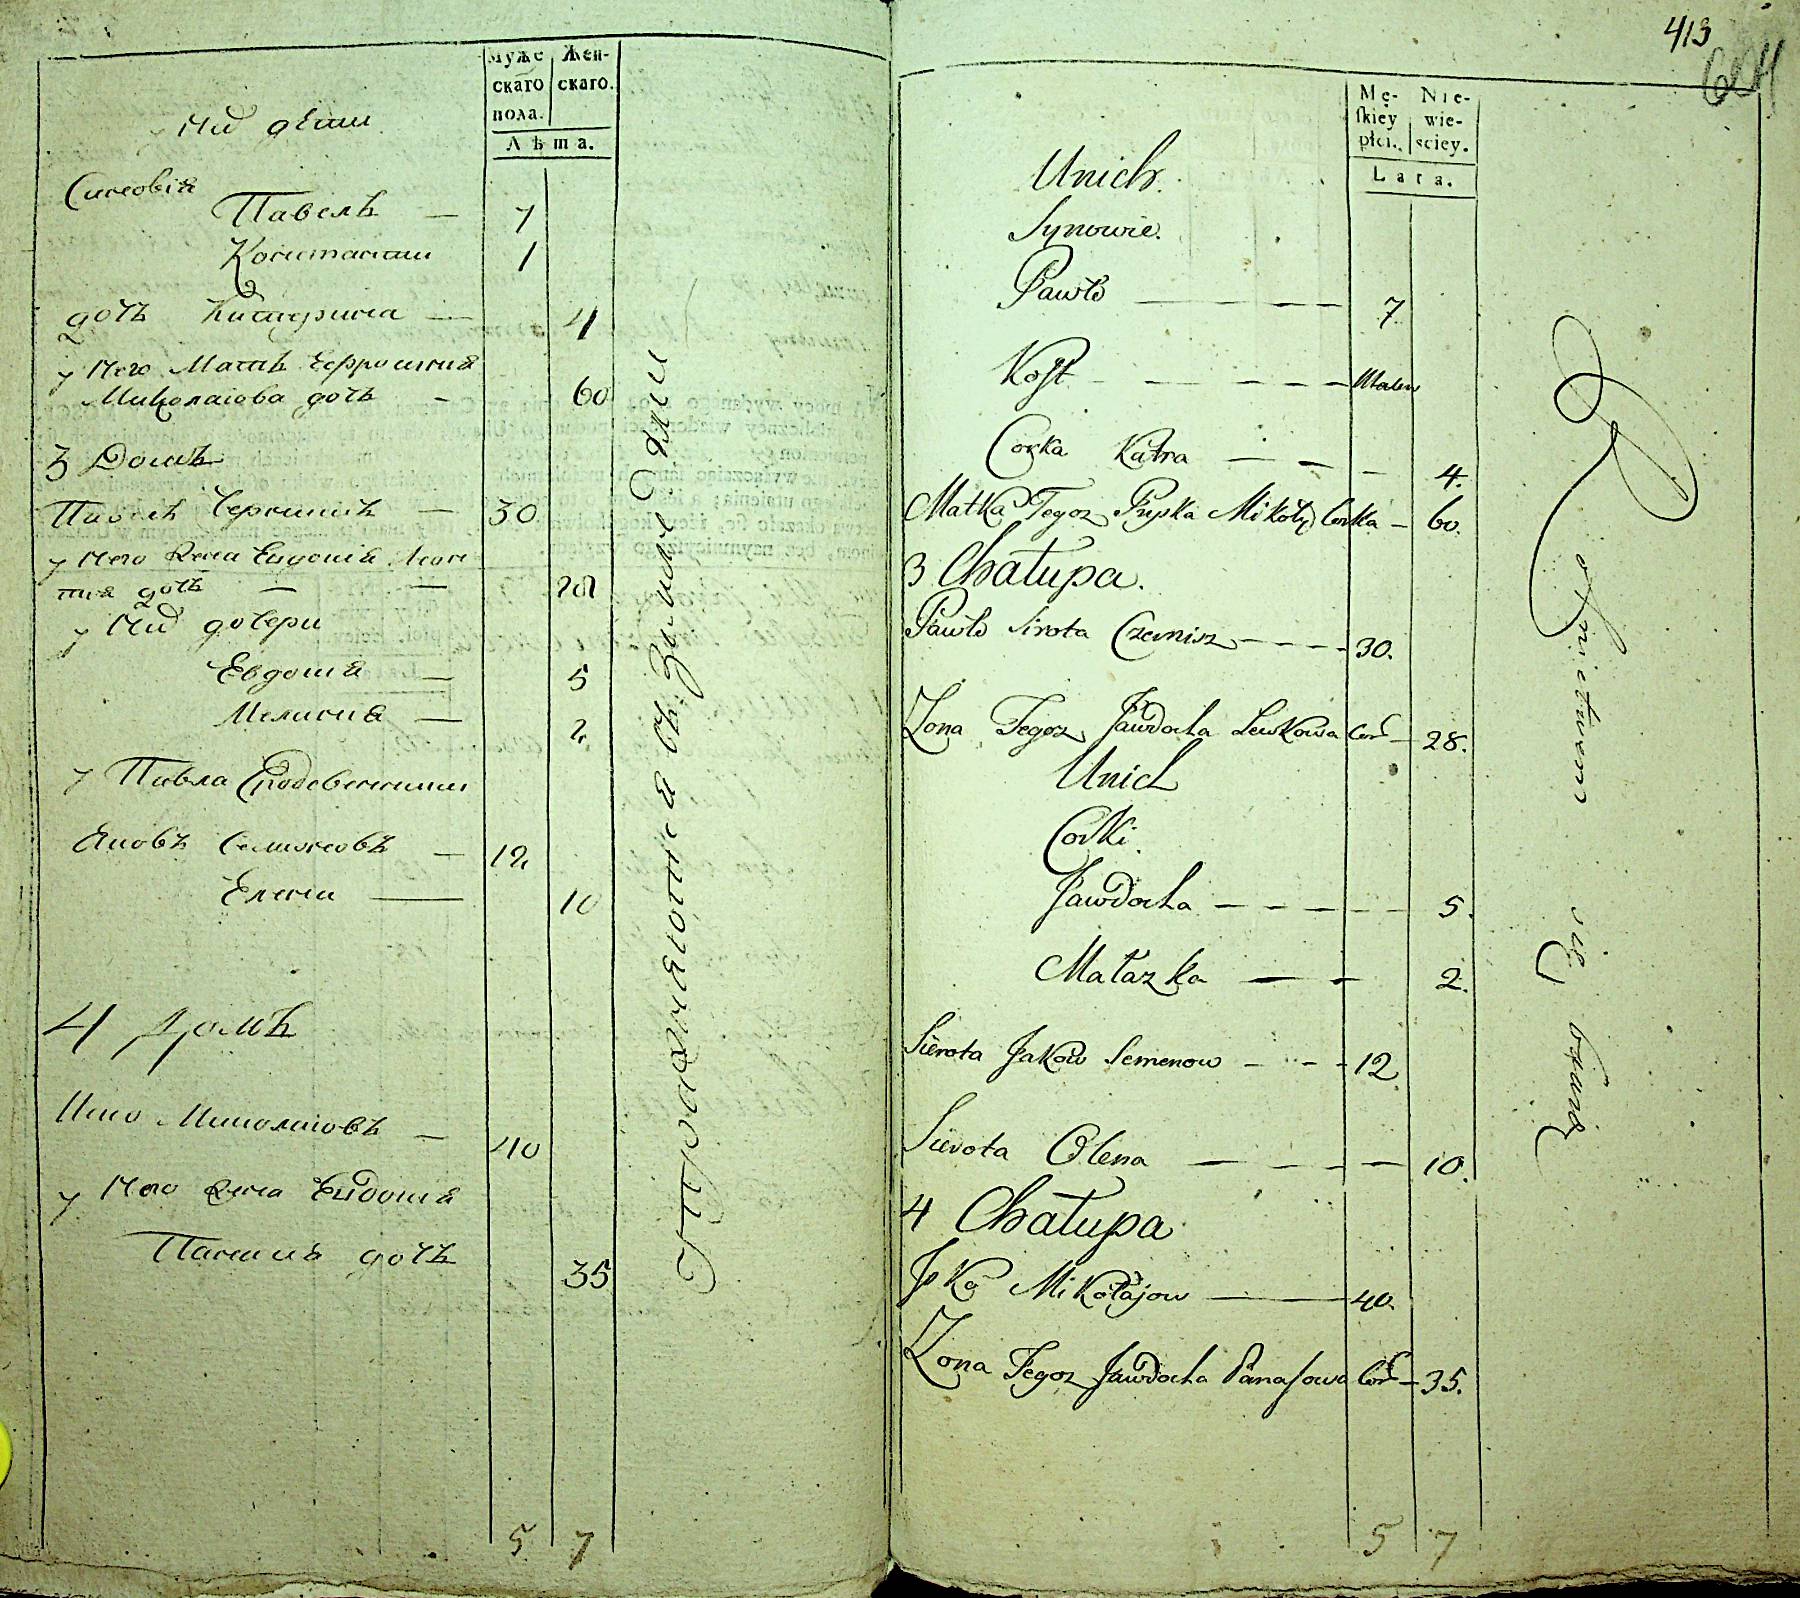 Муже Жен-
скаго скаго.
пола.
Лѣта.
у Нихъ дѣти
Синовія
Павелъ — 7
Константи 1
дочь Катерина — 4
у Него Мать Еѳросинія
Миколаіова дочь - 60
3 Домъ
Павелъ Чернишъ — 30
у Него Жена Евдокія Леон
тия дочь — — 28
у Нихъ дочери
Евдокія — 5
Меланія — 2
у Павла Сродственники
Яковъ Семионовъ — 12
Елена — 10
4 Домъ
Ико Миколаіовъ — 40
у Него Жена Евдокія
дочь 35
5 7
413
Mę- Nie-
skiey wie-
płci. sciey.
Lata.
Unich.
Synowie.
Pawło — 7
Kost - — — — —
Corka Katra — — — 4.
Matka Tegoz Pryska Mikoły Corka — 60.
3 Chałupa.
Pawło sirota Czernisz - - - - 30.
Zona Tegoz Jawdocha Lewkowa Cor — 28.
Unich
Corki.
Jawdocha — - - — — 5.
Małazka — - - 2.
Sierota Jakow Semenow — - - - 12
Sierota Olena — — - - — 10.
4 Chałupa
Jsko Mikołajow — 40.
Zona Tegoz Jawdocha Panasowa Cor — 35.
5 7